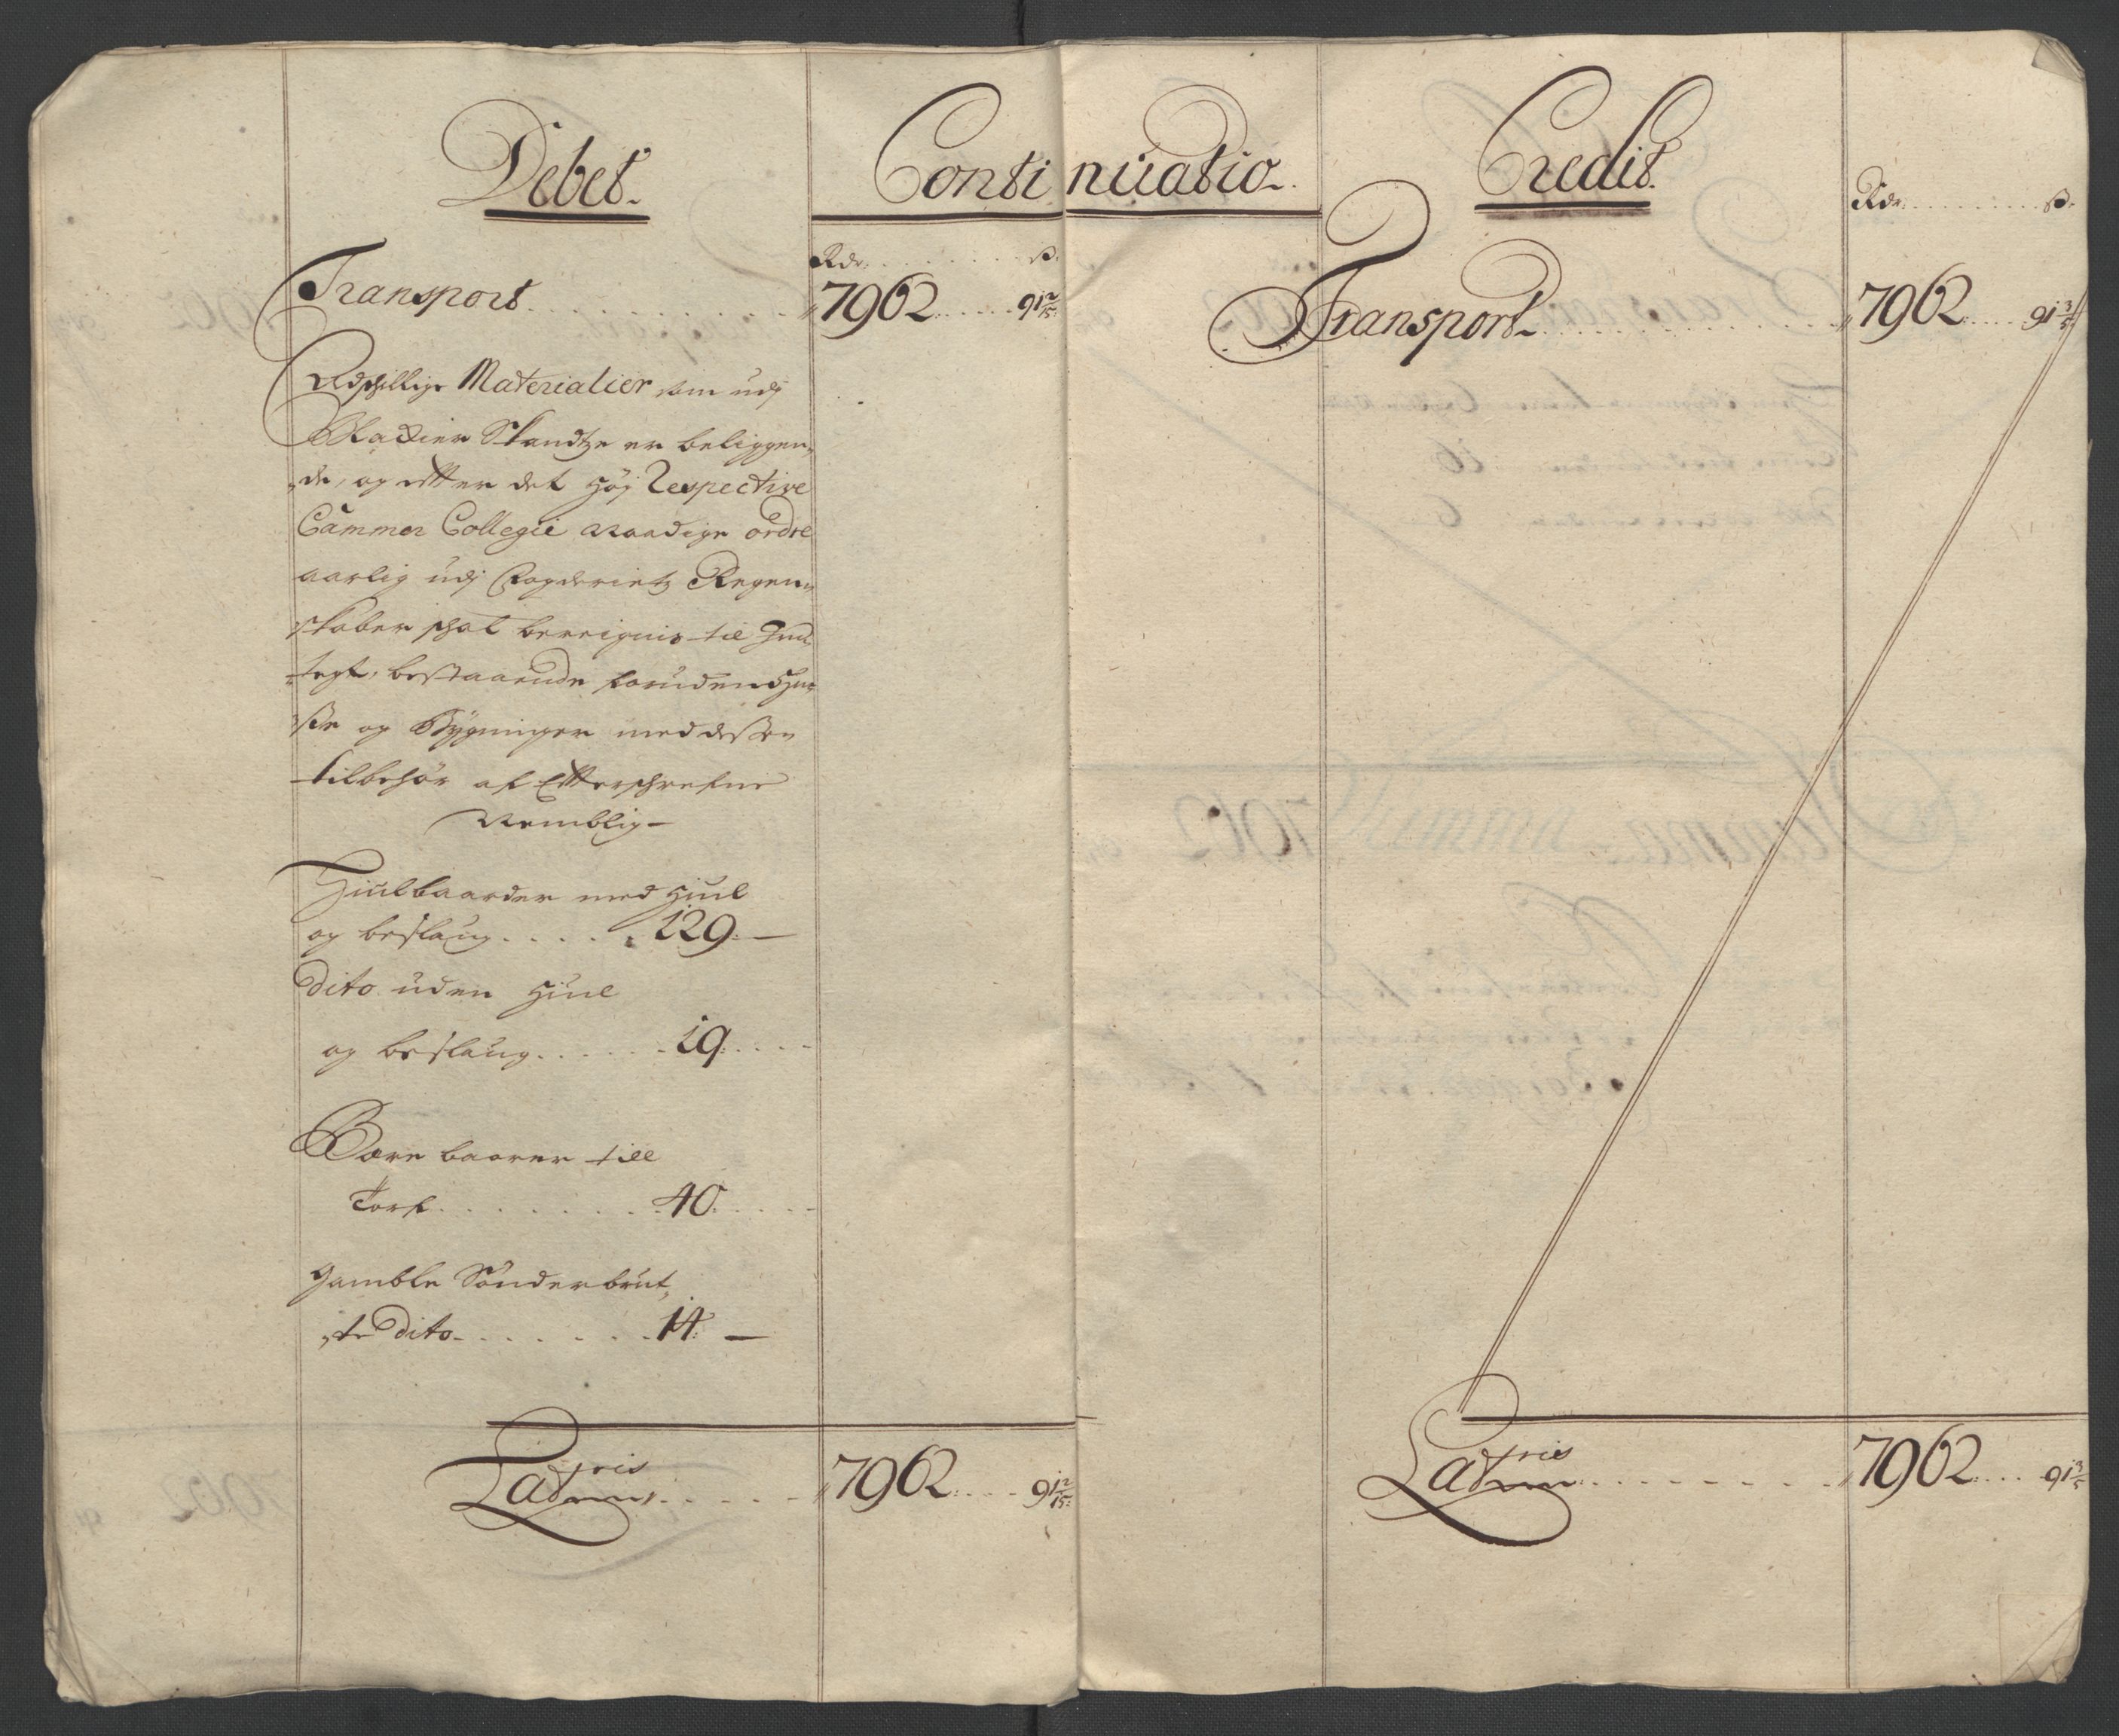 Debet.
Continuatio.
Credit.
Rdr. ß.
Transport. 7962 91 2/15
Adschillige Materialier som udj
Blackier Skandtze er beliggen„
„de, og efter det høj Respective
Cammer Collegii Naadige ordre
aarlig udj Fogderietz Regen„
skaber schal bereignis til Ind„
„tegt, bestaaende foruden Hu„
„sse og Bygninger med dessen
tilbehør af Efterschrefne
Nemblig
Hiulbaarder med Hiul
og beslaug 129
Dito uden Hiul
og beslaug 19
Bære baarer till
Torf 40
gamble Sønderbrut„
„te Dito 14
Latris 7962 91 2/15
Rdr. ß.
Transport 7962 91 3/5
Latris 7962 91 3/5